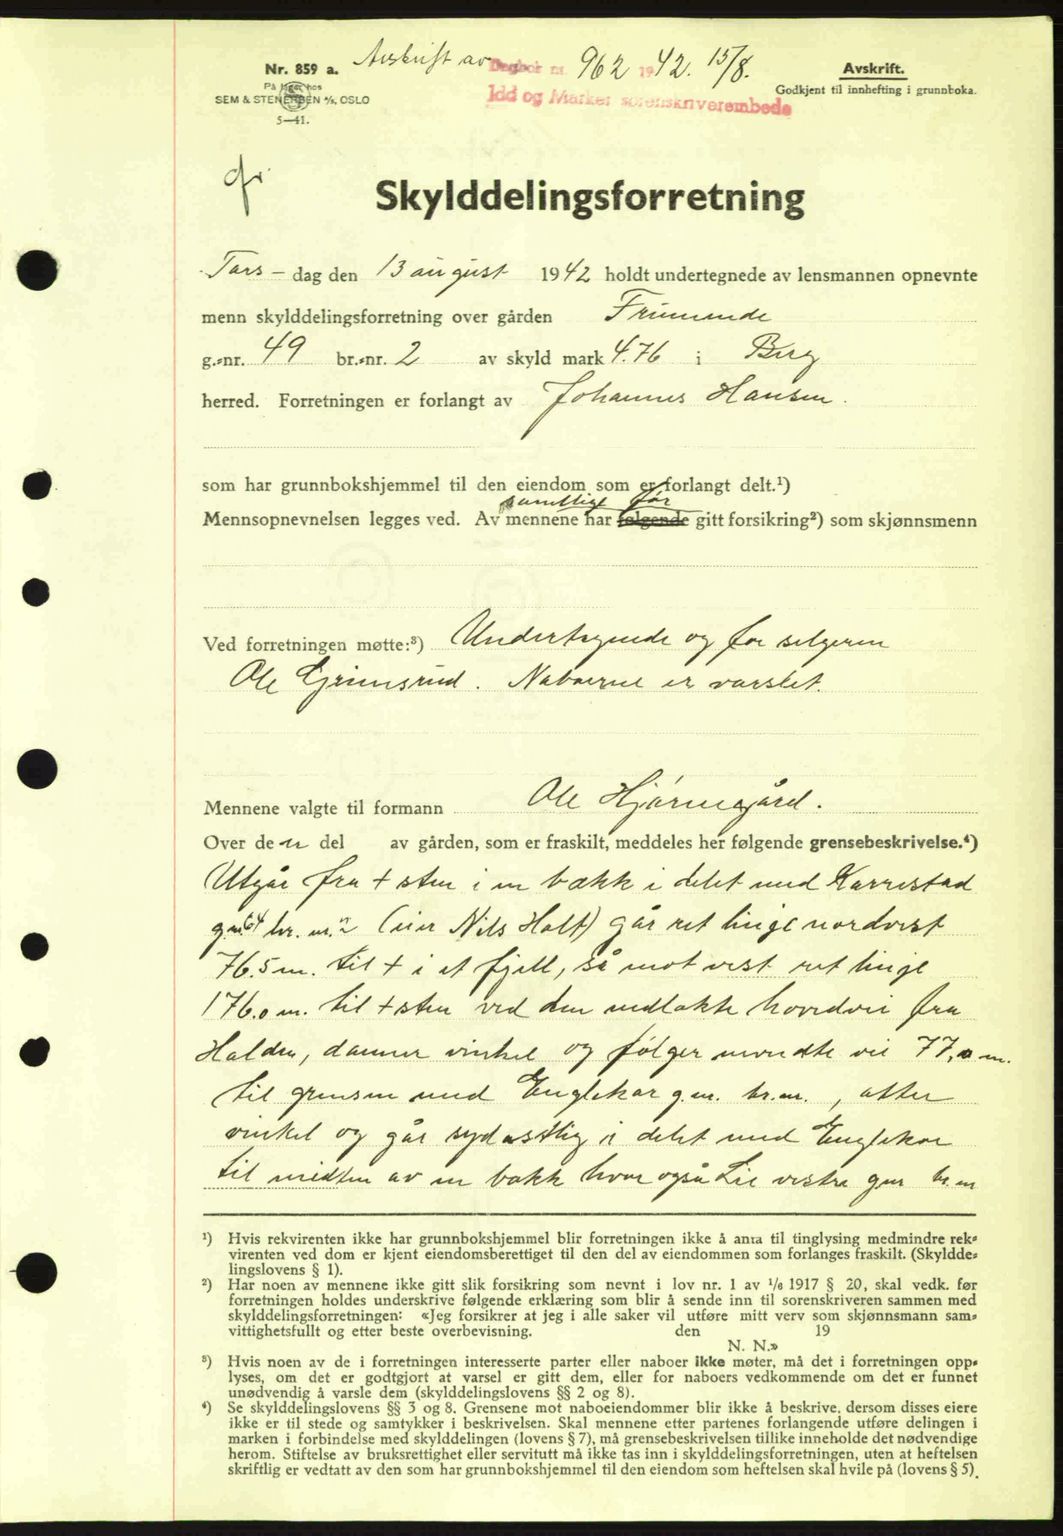 Nr. 859 a.
På lager hos
SEM & STENERSEN A/S, OSLO
5—41.
Avskrift av Dagbok nr. 962 1942. 15/8.
Idd og Marker sorenskriverembede
Avskrift.
Godkjent til innhefting i grunnboka.
Skylddelingsforretning
Tors - dag den 13 august 1942 holdt undertegnede av lensmannen opnevnte
menn skylddelingsforretning over gården
g.-nr. 49 br.-nr. 2 av skyld mark 4.76 i Berg
herred. Forretningen er forlangt av Johannes Hansen.
som har grunnbokshjemmel til den eiendom som er forlangt delt.¹)
samtlige før
Mennsopnevnelsen legges ved. Av mennene har følgende gitt forsikring²) som skjønnsmenn
Ved forretningen møtte:³) Undertegnede og for selgeren
Ole Grimsrud. Naboerne er varslet.
Mennene valgte til formann Ole Hjørnegård.
Over den del av gården, som er fraskilt, meddeles her følgende grensebeskrivelse.⁴)
Utgår fra + sten i en bækk i delet med Karrestad
g.nr. 64 br. nr. 2 (eier Nils Holt) går ret linje nordvest
76.5 m. til + i et fjell, så mot vest ret linje
176.0 m. til + sten ved den nedlakte hovedvei fra
Halden, danner vinkel og følger nevnte vei 77,0 m.
til grensen med Englekor g.nr. br.nr. , atter
vinkel og går sydøstlig i delet med Englekor
til midten av en bækk hvor også Lie vestre gnr br.nr
¹) Hvis rekvirenten ikke har grunnbokshjemmel blir forretningen ikke å anta til tinglysing medmindre rek-
virenten ved dom er kjent eiendomsberettiget til den del av eiendommen som forlanges fraskilt. (Skyldde-
lingslovens § 1).
²) Har noen av mennene ikke gitt slik forsikring som nevnt i lov nr. 1 av 1/6 1917 § 20, skal vedk. før
forretningen holdes underskrive følgende erklæring som blir å sende inn til sorenskriveren sammen med
skylddelingsforretningen: «Jeg forsikrer at jeg i alle saker vil utføre mitt verv som skjønnsmann sam-
vittighetsfullt og etter beste overbevisning. den 19
N. N.»
³) Hvis noen av de i forretningen interesserte parter eller naboer ikke møter, må det i forretningen opp-
lyses, om det er godtgjort at varsel er gitt dem, eller for naboers vedkommende om det er funnet
unødvendig å varsle dem (skylddelingslovens §§ 2 og 8).
⁴) Se skylddelingslovens §§ 3 og 8. Grensene mot naboeiendommer blir ikke å beskrive, dersom disses eiere
ikke er til stede og samtykker i beskrivelsen. Skal mennene etter partenes forlangende utføre delingen i
marken i forbindelse med skylddelingen (lovens § 7), må grensebeskrivelsen tillike inneholde det nødvendige
herom. Stiftelse av bruksrettighet eller servitutt må ikke tas inn i skylddelingsforretningen, uten at heftelsen
skriftlig er vedtatt av den som har grunnbokshjemmel til den eiendom som heftelsen skal hvile på (lovens § 5).